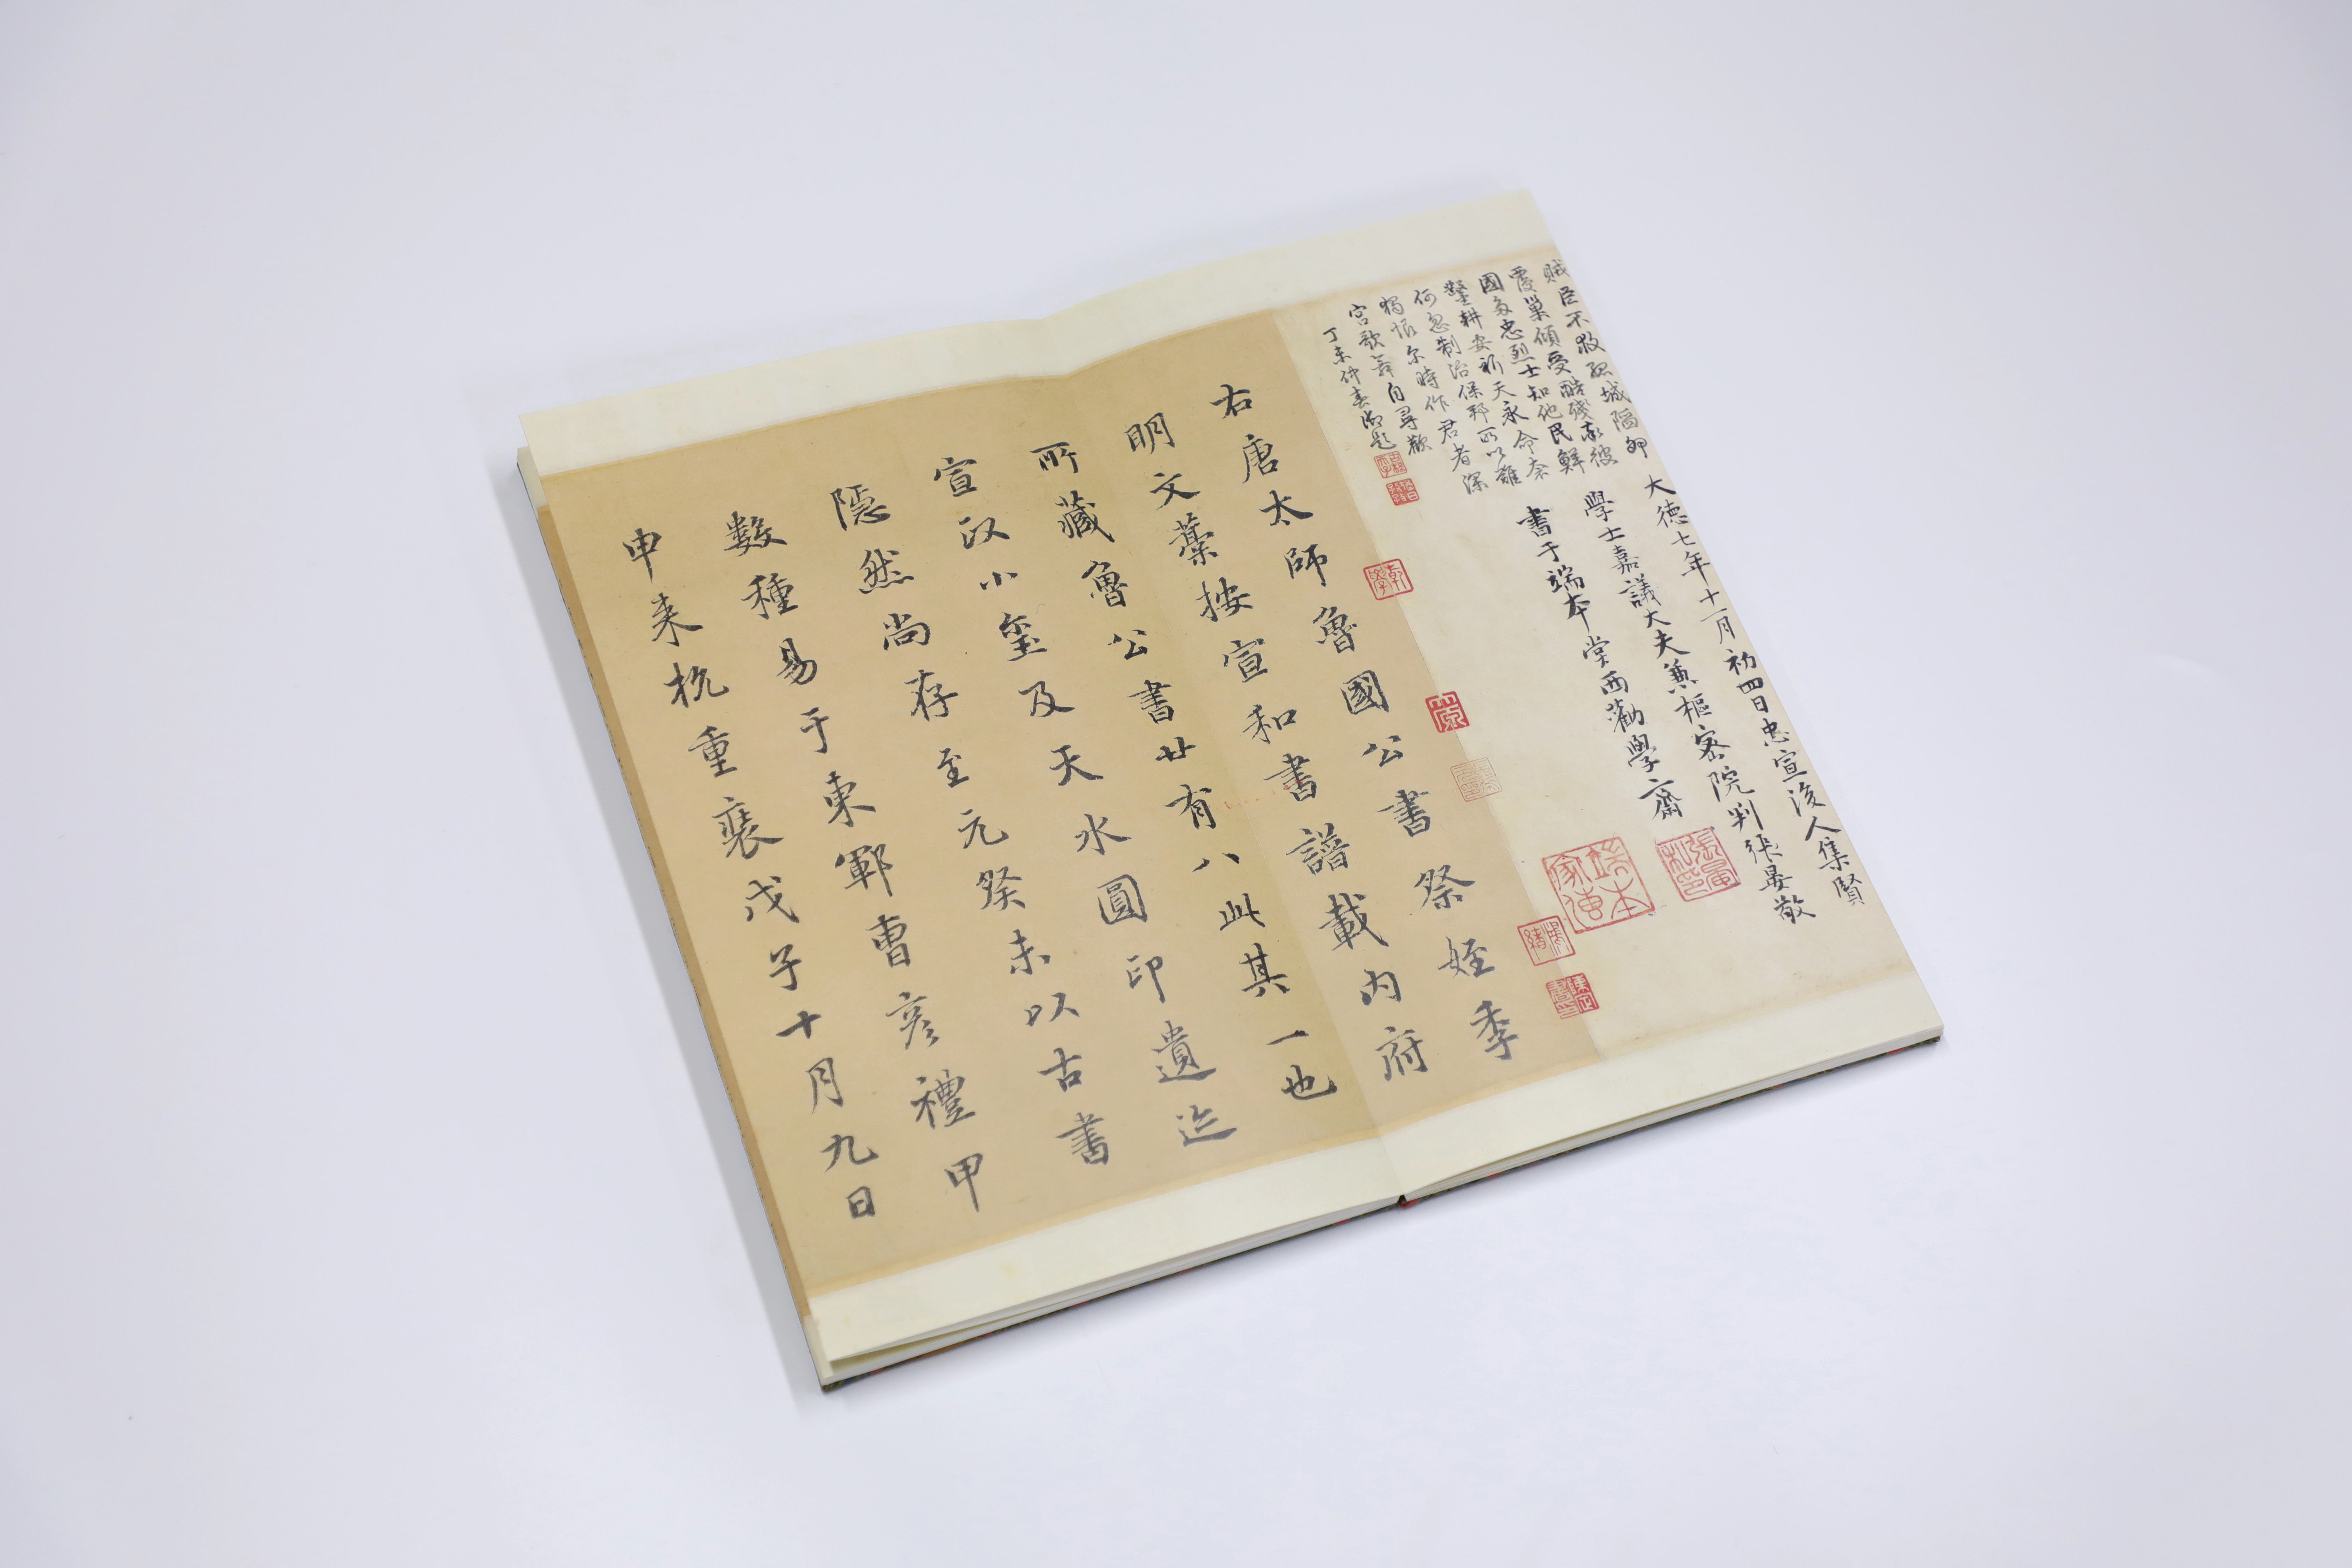 大德七年十一月初四日忠宣後人集賢
學士嘉議大夫兼樞密院判張晏敬
書于端本堂西勸學齋
賊臣不救孤城陷卵
覆巢傾受酷殘哀彼
國多忠烈士知他民鮮
鑿耕安祈天永命奈
何忽制治保邦所以難
獨恨尔時作君者深
宮歌舞自尋歡
丁未仲春御題
右唐太師魯國公書祭姪季
明文藁按宣和書譜載內府
所藏魯公書廿有八此其一也
宣政小璽及天水圓印遺迹
隱然尚存至元癸未以古書
數種易于東鄆曹彥禮甲
申來杭重裝戊子十月九日
端本家傳